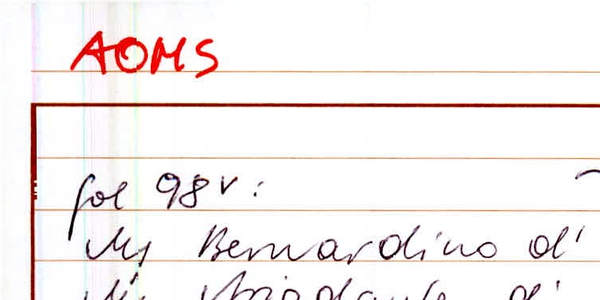 AOMS
fol 98v:
Mg Bernardino di
di